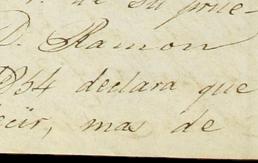 de su prue-
D. Ramon
1854 declara que
mas de